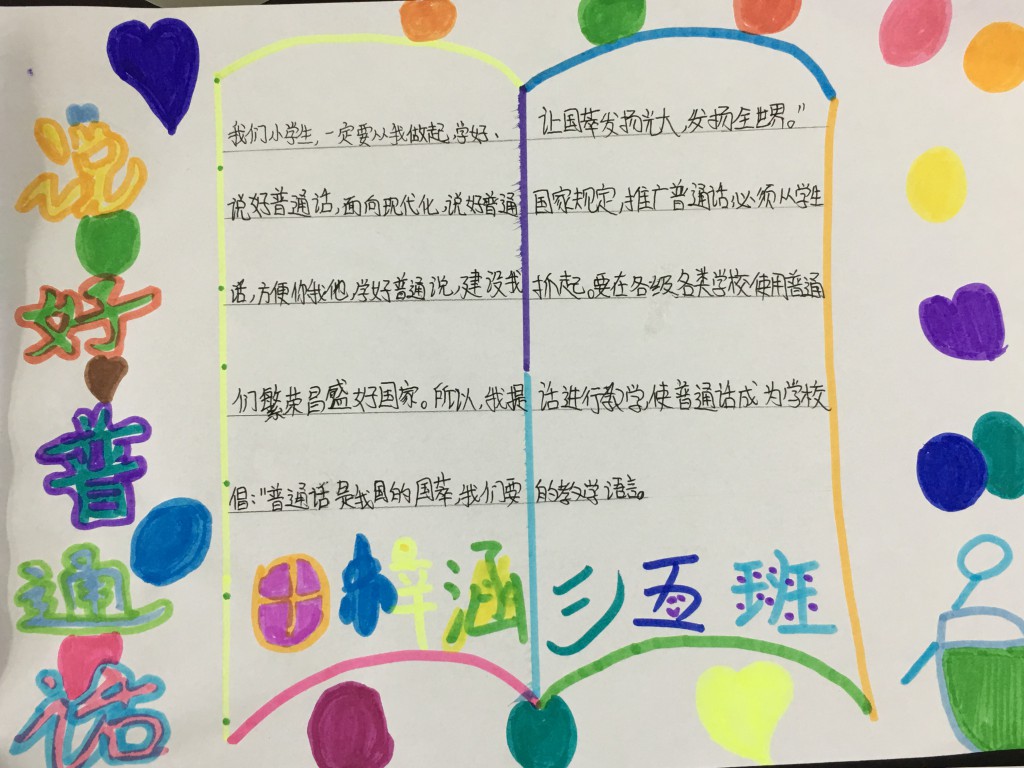 说好普通话
我们小学生,一定要从我做起,学好、
说好普通话,面向现代化,说好普通
话,方便你我他,学好普通说,建设我
们繁荣昌盛好国家。所以,我提
倡:"普通话是我国的国萃,我们要
让国萃发扬光大,发扬全世界。"
国家规定,推广普通话必须从学生
抓起。要在各级各类学校使用普通
话进行教学,使普通话成为学校
的教学语言。
田梓涵 三五班